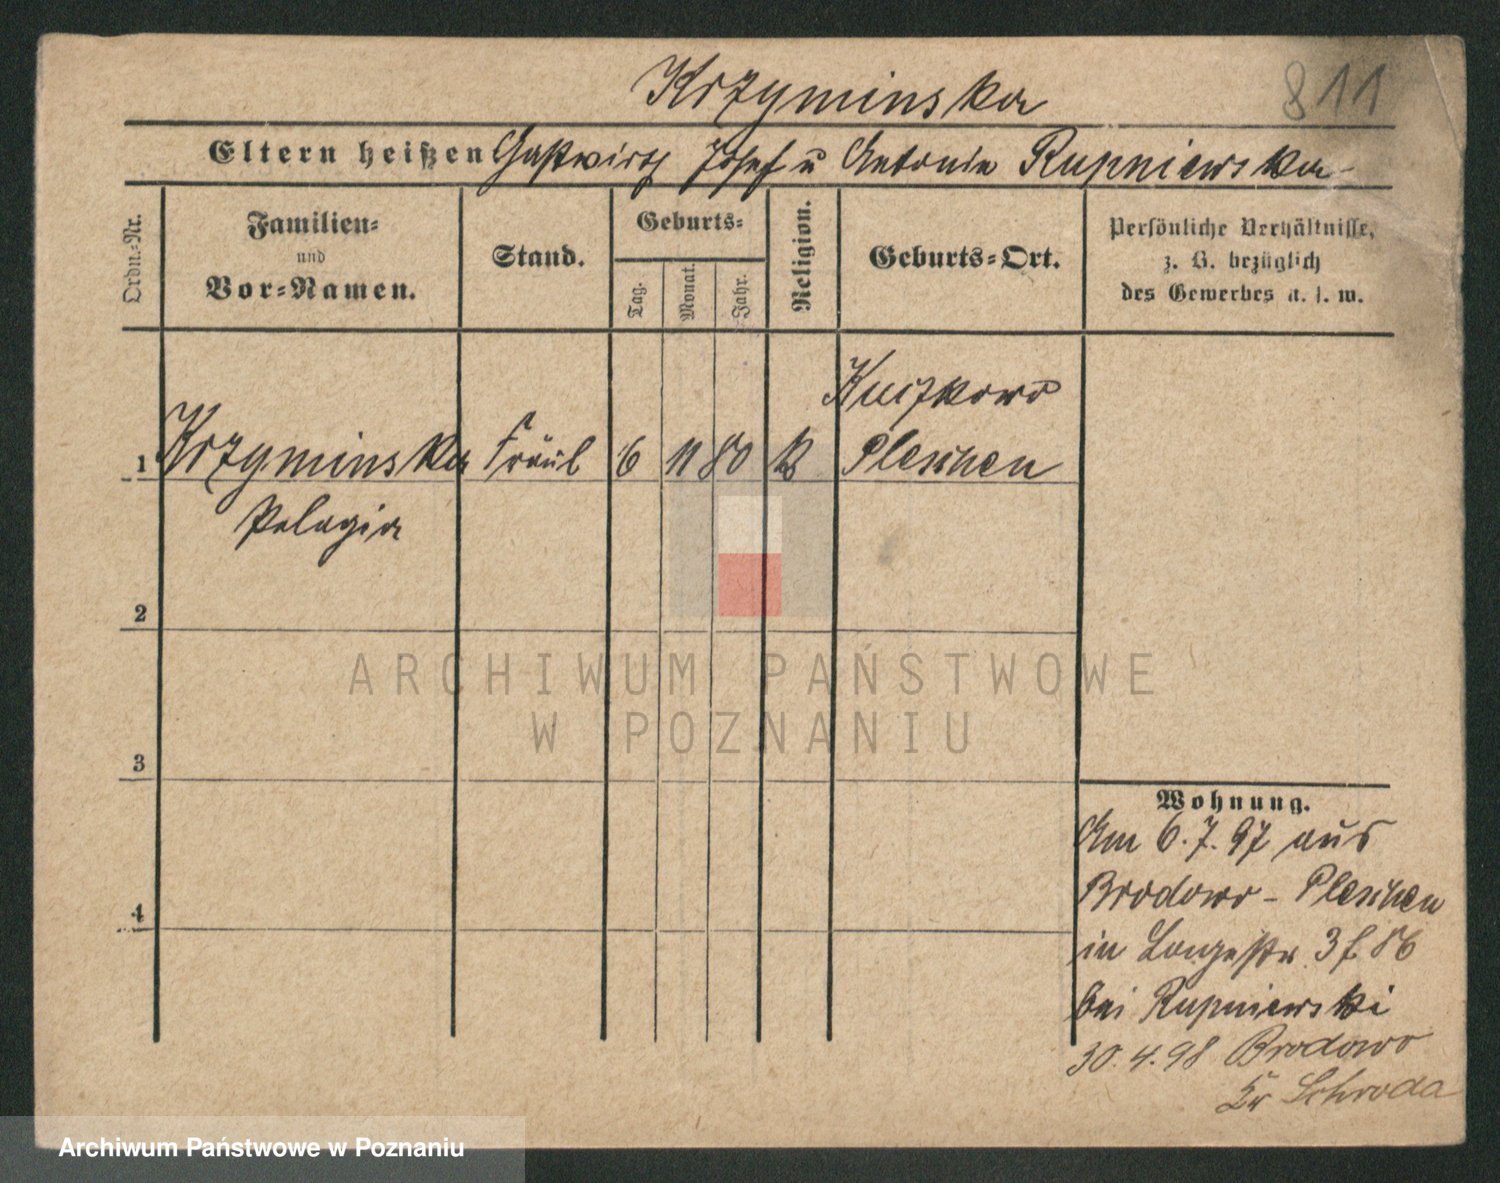 Krzyminska
811
Eltern heißen Gastwirth Josef u Antonie Rupniewska
Ordn.-Nr.
Familien-
und
Vor-Namen.
Stand.
Geburts-
Tag.
Monat.
Jahr.
Religion.
Geburts-Ort.
Persönliche Verhältnisse,
z. B. bezüglich
des Gewerbes u. s. w.
1 Krzyminska Fräul 6 11 80 k
Pleschen
Pelagia
2
3
4
ARCHIWUM PAŃSTWOWE
W POZNANIU
Wohnung.
Am 6.7.97 aus
Brodowo - Pleschen
in Langestr 3
bei Rupniewski
30.4.98 Brodowo
Kr Schroda
Archiwum Państwowe w Poznaniu